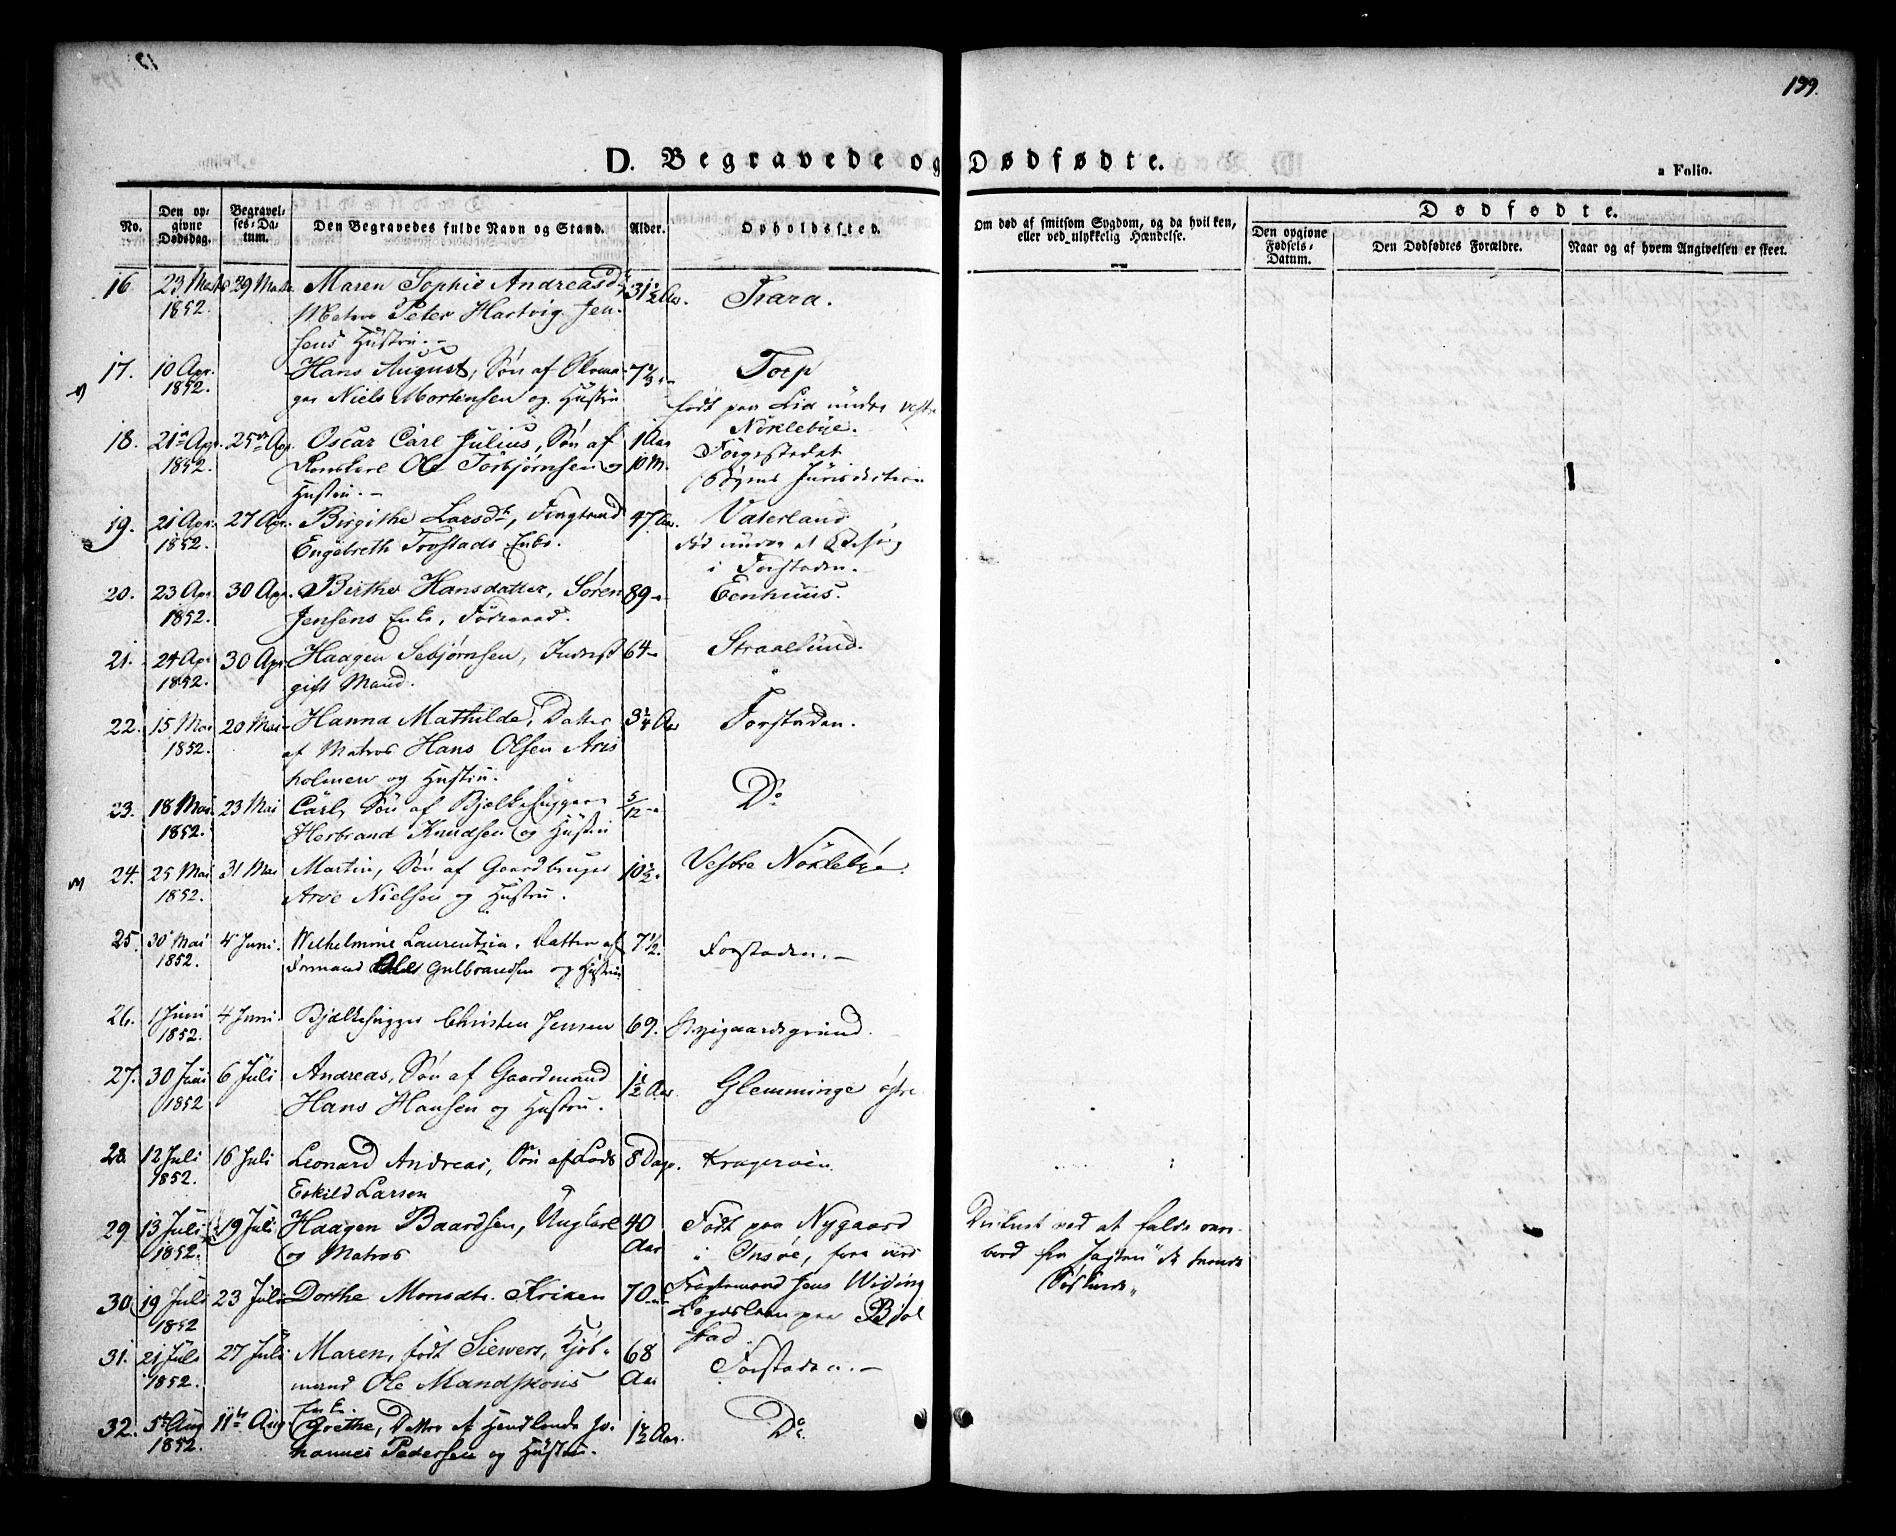 199.
D. Begravede og Dødfødte.
a Folio.
No.
Den opgivne Dødsdag.
Begravelses-Datum.
Den Begravedes fulde Navn og Stand.
Alder.
Opholdssted.
Om død af smitsom Sygdom, og da hvilken, eller ved ulykkelig Hændelse.
Dødfødte.
Den opgivne Fødsels-Datum.
Den Dødfødtes Forældre.
Naar og af hvem Angivelsen er skeet.
16 23 Marts 29 Marts Maren Sophie Andreasdr 31½ Aar. Trara.
1852. Matros Peter Hartvig Jen-
sens Hustru.
17. 10 Apr. Hans August, Søn af Skoma- 7 Torp
1852. ger Niels Mortensen og Hustru født paa Lia under vestre
Nøklebye.
18. 21 Apr. 25 Apr. Oscar Carl Julius, Søn af 1 Aar
1852. Ole Torbjørnsen og 10 M. Byens Jurisdiction
Hustru.
19. 21 Apr. 27 Apr. Birgithe Larsdtr, 47 Aar. Vaterland
1852. Engebreth Trostads Enke. død under et Besøg
i Forstaden.
20. 23 Apr. 30 Apr. Birthe Hansdatter, Søren 89 Eenhuus.
1852. Jensens Enke, Føderaad.
21. 24 Apr 30 Apr Haagen Sebjørnsen, Inderst 64 Straalsund.
1852. gift Mand.
22. 15 Mai 20 Mai Hanna Mathilde, Datter 3¼ Aar Forstaden.
1852. af Matros Hans Olsen Aris
holmen og Hustru.
23. 18 Mai 23 Mai Carl, Søn af Bjelkehugger 5/12 Do
1852. Herbrand Knudsen og Hustru
24. 25 Mai 31 Mai Martin, Søn af Gaardbruger 10½ Vestre Nøklebye.
1852. Arve Nielsen og Hustru.
25. 30 Mai 4 Juni. Wilhelmine Laurentzia, Datter af 7½. Forstaden.
1852. Formand Ole Gulbrandsen og Hustru
26. 1 Juni 4 Juni. Bjelkehugger Christen Jensen 69.
1852.
27. 30 Juni 6 Juli Andreas, Søn af Gaardmand 1½ Aar. Glemminge østre.
1852 Hans Hansen og Hustru.
28. 12 Juli 16 Juli Leonard Andreas, Søn af Lods 8 Dage. Kragerøen
1852. Eskild Larsen
29 13 Juli 19 Juli Haagen Baardsen, Ungkarl 40 Født paa Nygaard Druknet ved at falde over-
1852. og Matros Aar i Onsøe, bord fra Jagten
Søskende"
30. 19 Juli 23 Juli Dorthe Monsdtr. Kriken 70 Fragtemand Jens Widing
1852 paa Bjøl
stad.
31. 21 Juli 27 Juli Maren, født Siewers, Kjøb- 68 Forstaden.
1852. mand Ole Mandskous Aar
Enke.
32. 5te Aug 11te Aug. Grethe, Datter af Handlende Jo- 1½ Aar. Do.
1852. hannes Pedersen og Hustru.